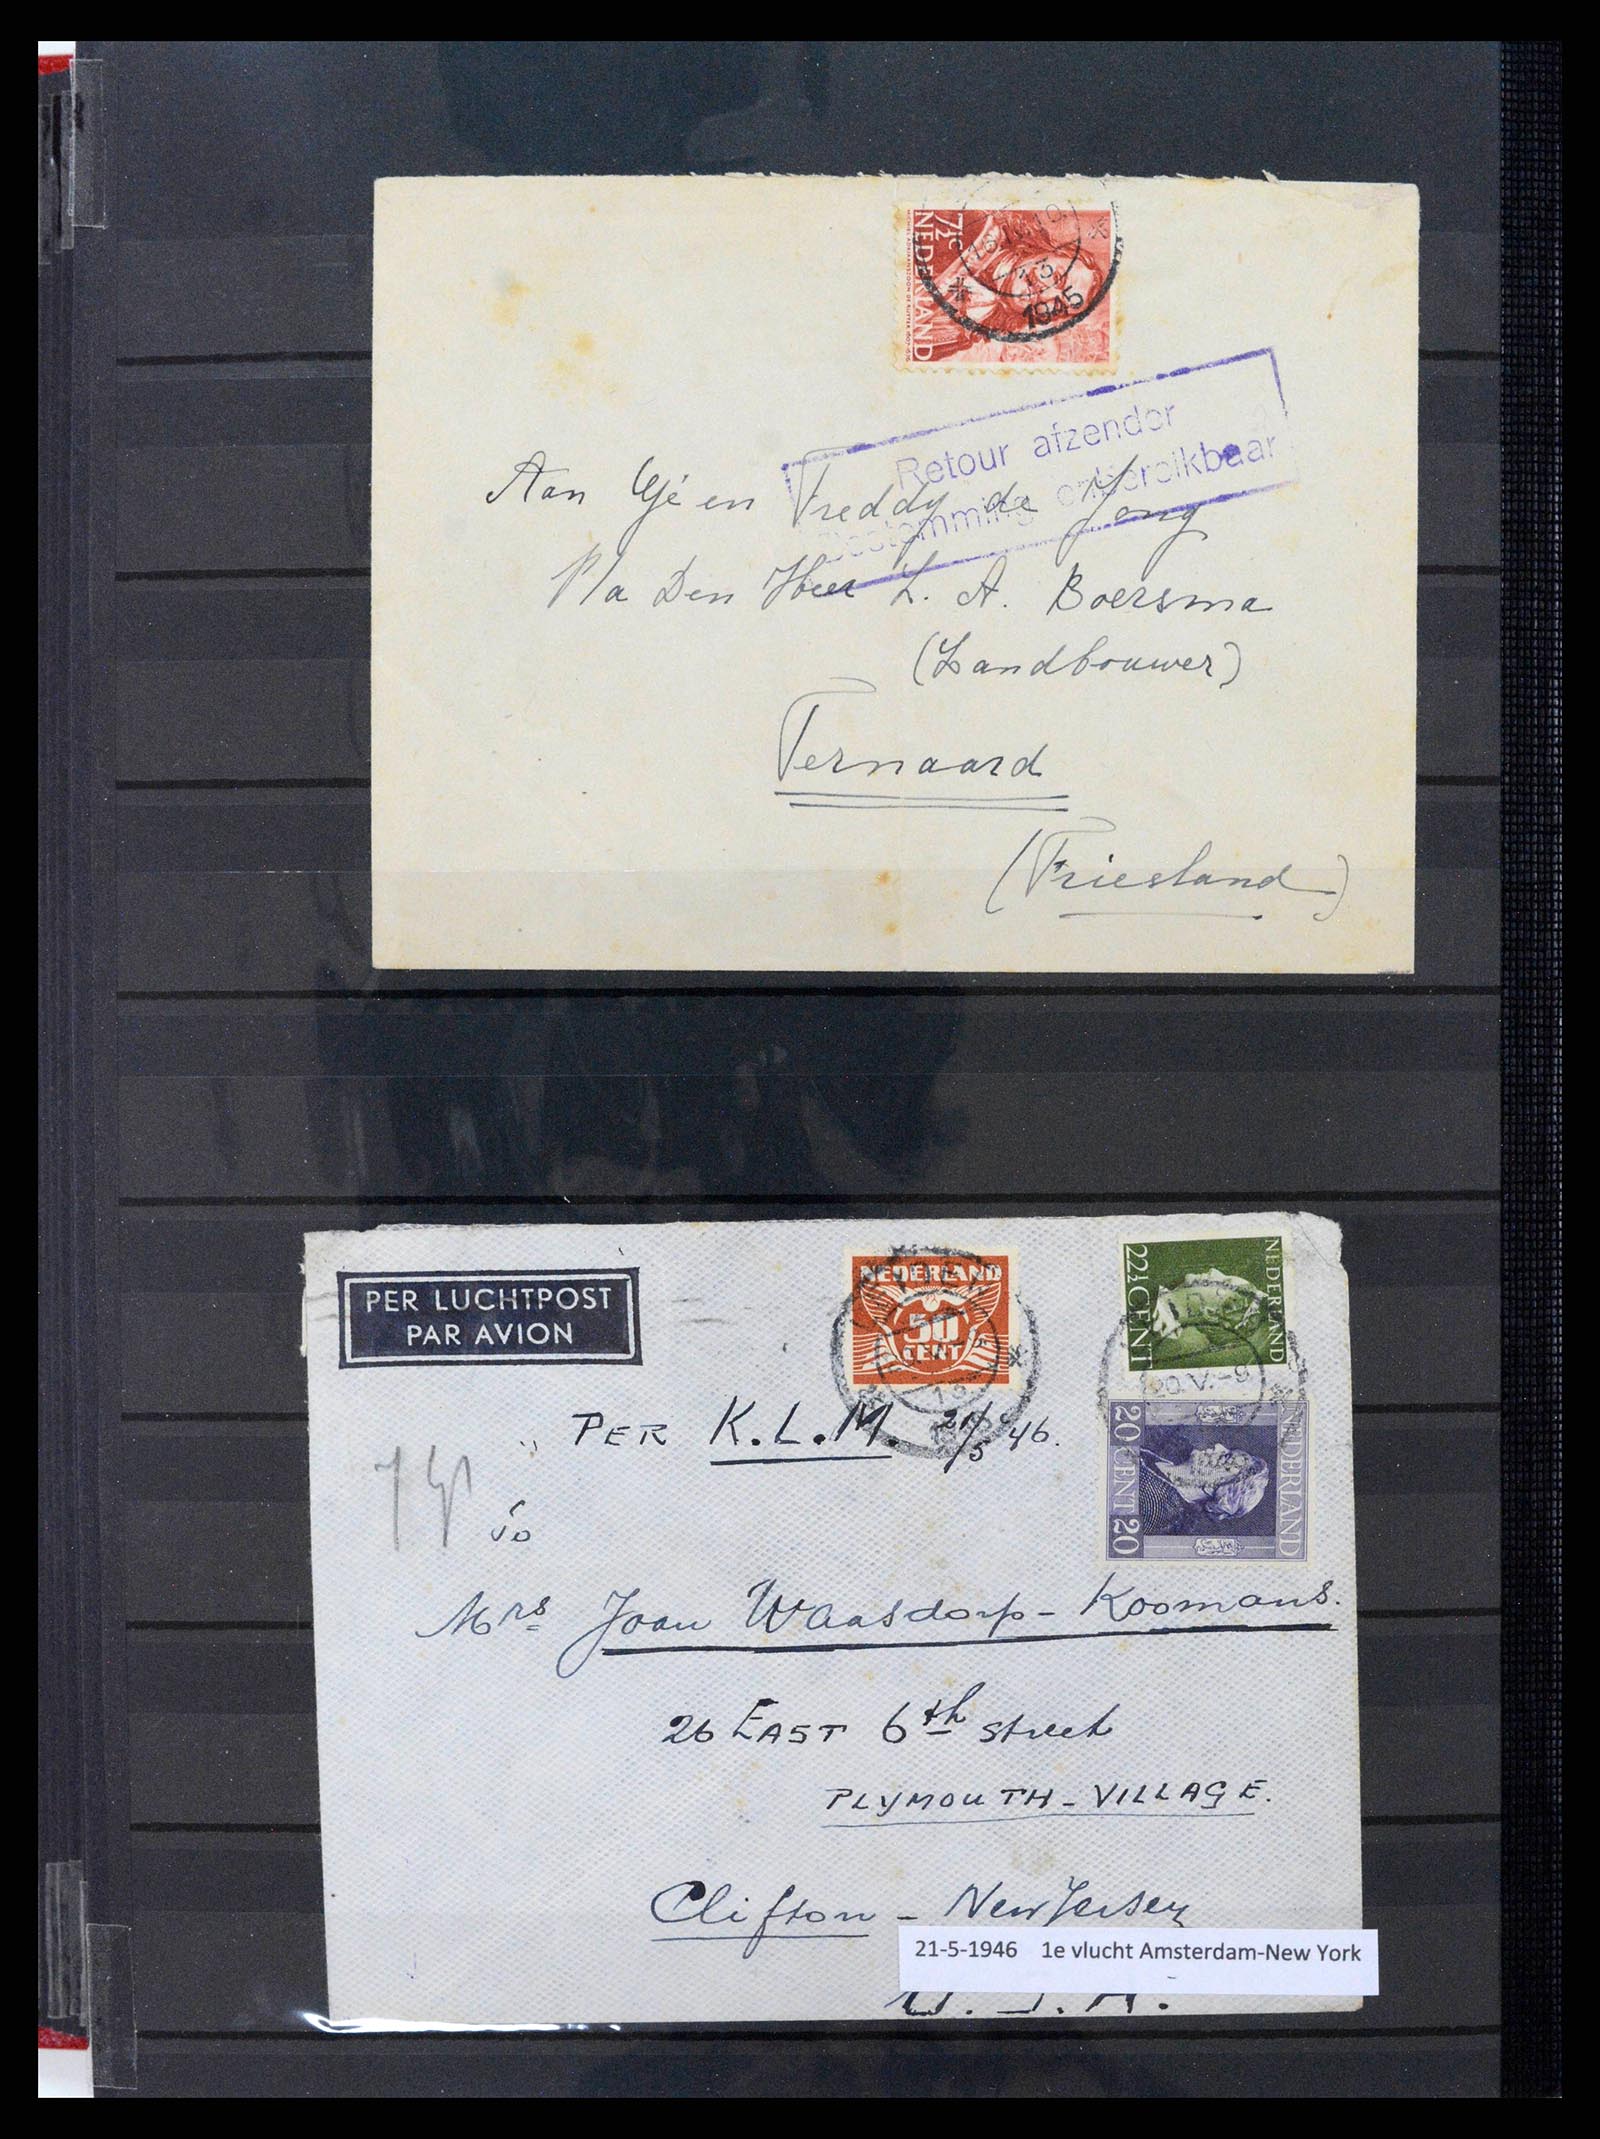 7½c
NEDERLAND
MICHIEL ADRIAANSZOON DE RUYTER 1607-1676
1945
Retour afzender
Bestemming onbereikbaar
Aan Gé en Freddy de Jong
P/a Den Heer L. A. Boersma
(Landbouwer)
Ternaard
(Friesland)
PER LUCHTPOST
PAR AVION
NEDERLAND
50
CENT
22½ CENT
NEDERLAND
20.V.-9
20 CENT 20
NEDERLAND
PER K.L.M. 21/5 46.
To
Mrs Joan Waasdorp-Koomans.
26 EAST 6th Street
PLYMOUTH-VILLAGE.
Clifton - New Jersey
21-5-1946 1e vlucht Amsterdam-New York
U.S.A.